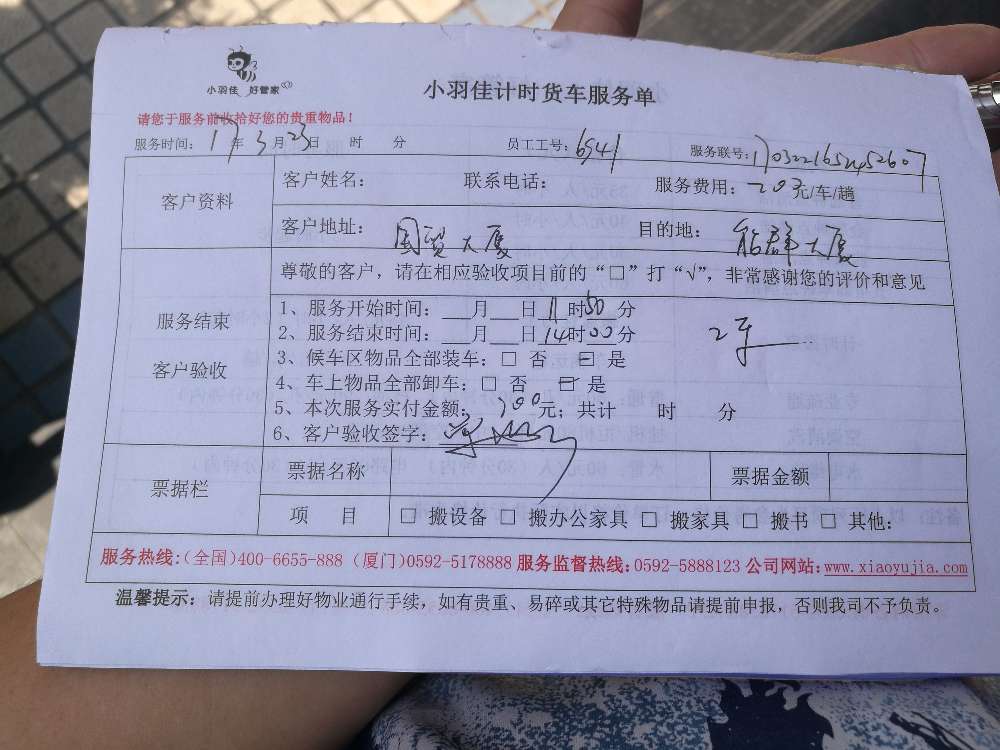 小羽佳 好管家
小羽佳计时货车服务单
请您于服务前收拾好您的贵重物品！
服务时间：17年3月23日 时 分 员工工号：6941 服务联号：
客户资料 客户姓名： 联系电话： 服务费用：203元/车/趟
客户地址：国贸大厦 目的地：船群大厦
尊敬的客户，请在相应验收项目前的“□”打“√”，非常感谢您的评价和意见
服务结束
客户验收
1、服务开始时间：___月___日11时50分
2、服务结束时间：___月___日14时00分
3、候车区物品全部装车：□ 否 □ 是
4、车上物品全部卸车：□ 否 □ 是
5、本次服务实付金额：元；共计 时 分
6、客户验收签字：
票据栏 票据名称 票据金额
项 目 □ 搬设备 □ 搬办公家具 □ 搬家具 □ 搬书 □ 其他：
服务热线:(全国)400-6655-888 (厦门)0592-5178888 服务监督热线:0592-5888123 公司网站:www.xiaoyujia.com
温馨提示：请提前办理好物业通行手续，如有贵重、易碎或其它特殊物品请提前申报，否则我司不予负责。